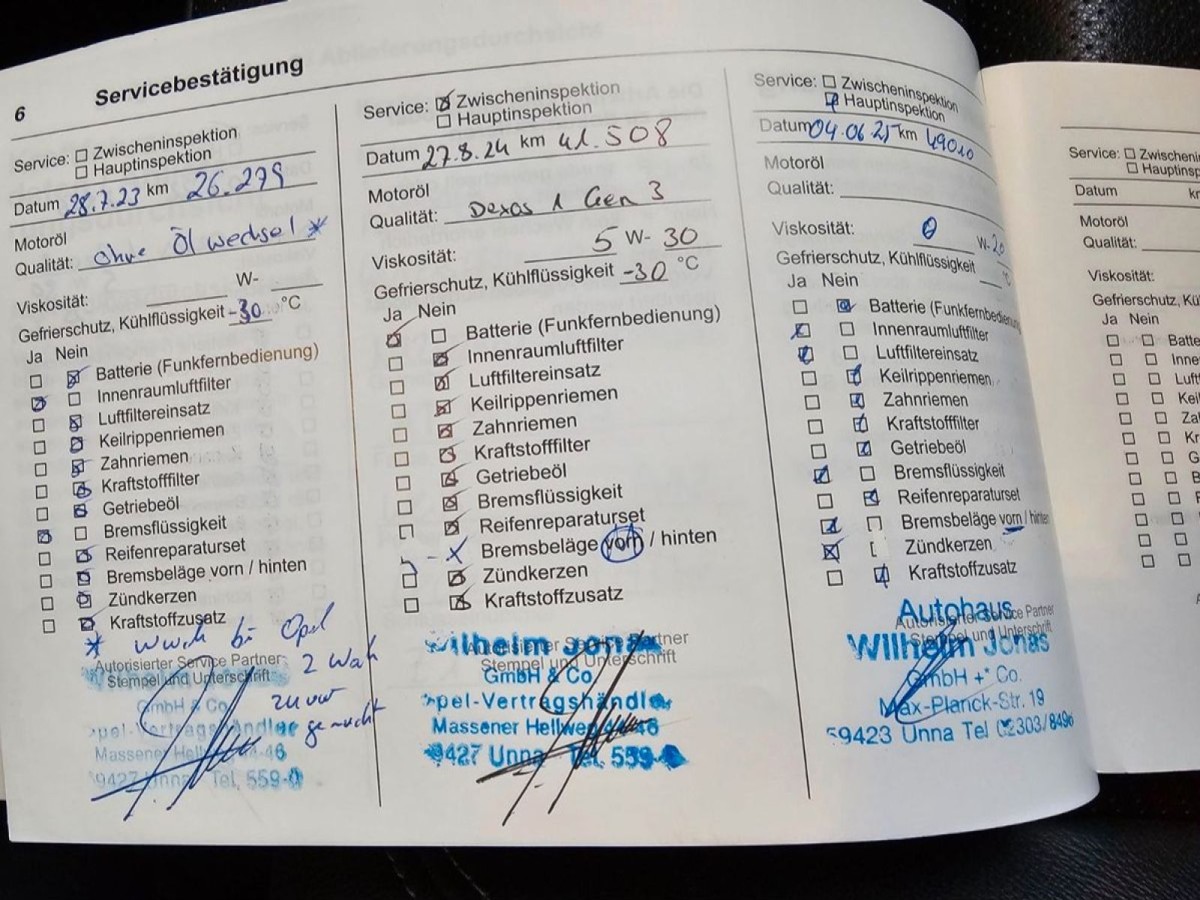 6 Servicebestätigung
Service: Zwischeninspektion
Hauptinspektion
Datum 28.7.23 km 26.279
Motoröl
Qualität: ohne Ölwechsel *
Viskosität: W-
Gefrierschutz, Kühlflüssigkeit -30 °C
Ja Nein
Batterie (Funkfernbedienung)
Innenraumluftfilter
Luftfiltereinsatz
Keilrippenriemen
Zahnriemen
Kraftstofffilter
Getriebeöl
Bremsflüssigkeit
Reifenreparaturset
Bremsbeläge vorn / hinten
Zündkerzen
Kraftstoffzusatz
* wurde bei Opel
2 Wo
zuvor
gemacht
Autorisierter Service Partner
Stempel und Unterschrift
GmbH & Co.
pel-Vertragshändler
Massener Hell 46
9427 Unna Tel. 559-
Service: Zwischeninspektion
Hauptinspektion
Datum 27.8.24 km 41.508
Motoröl
Qualität: Dexos 1 Gen 3
Viskosität: 5 W- 30
Gefrierschutz, Kühlflüssigkeit -30 °C
Ja Nein
Batterie (Funkfernbedienung)
Innenraumluftfilter
Luftfiltereinsatz
Keilrippenriemen
Zahnriemen
Kraftstofffilter
Getriebeöl
Bremsflüssigkeit
Reifenreparaturset
Bremsbeläge vorn / hinten
Zündkerzen
Kraftstoffzusatz
Autorisierter Service Partner
Stempel und Unterschrift
Wilhelm Jonas
GmbH & Co.
pel-Vertragshändler
Massener Hellweg 44-46
9427 Unna Tel. 559-
Service: Zwischeninspektion
Hauptinspektion
Datum 04.06.25 km 49010
Motoröl
Qualität:
Viskosität: 0 W-20
Gefrierschutz, Kühlflüssigkeit °C
Ja Nein
Batterie (Funkfernbedienung
Innenraumluftfilter
Luftfiltereinsatz
Keilrippenriemen
Zahnriemen
Kraftstofffilter
Getriebeöl
Bremsflüssigkeit
Reifenreparaturset
Bremsbeläge vorn / hinten
Zündkerzen
Kraftstoffzusatz
Autorisierter Service Partner
Stempel und Unterschrift
Autohaus
Wilhelm Jonas
GmbH + Co.
Max-Planck-Str. 19
59423 Unna Tel 02303/8496
Service: Zwischenin
Hauptinsp
Datum km
Motoröl
Qualität:
Viskosität:
Gefrierschutz, Kü
Ja Nein
Batte
Inne
Luft
Kei
Za
Kr
G
B